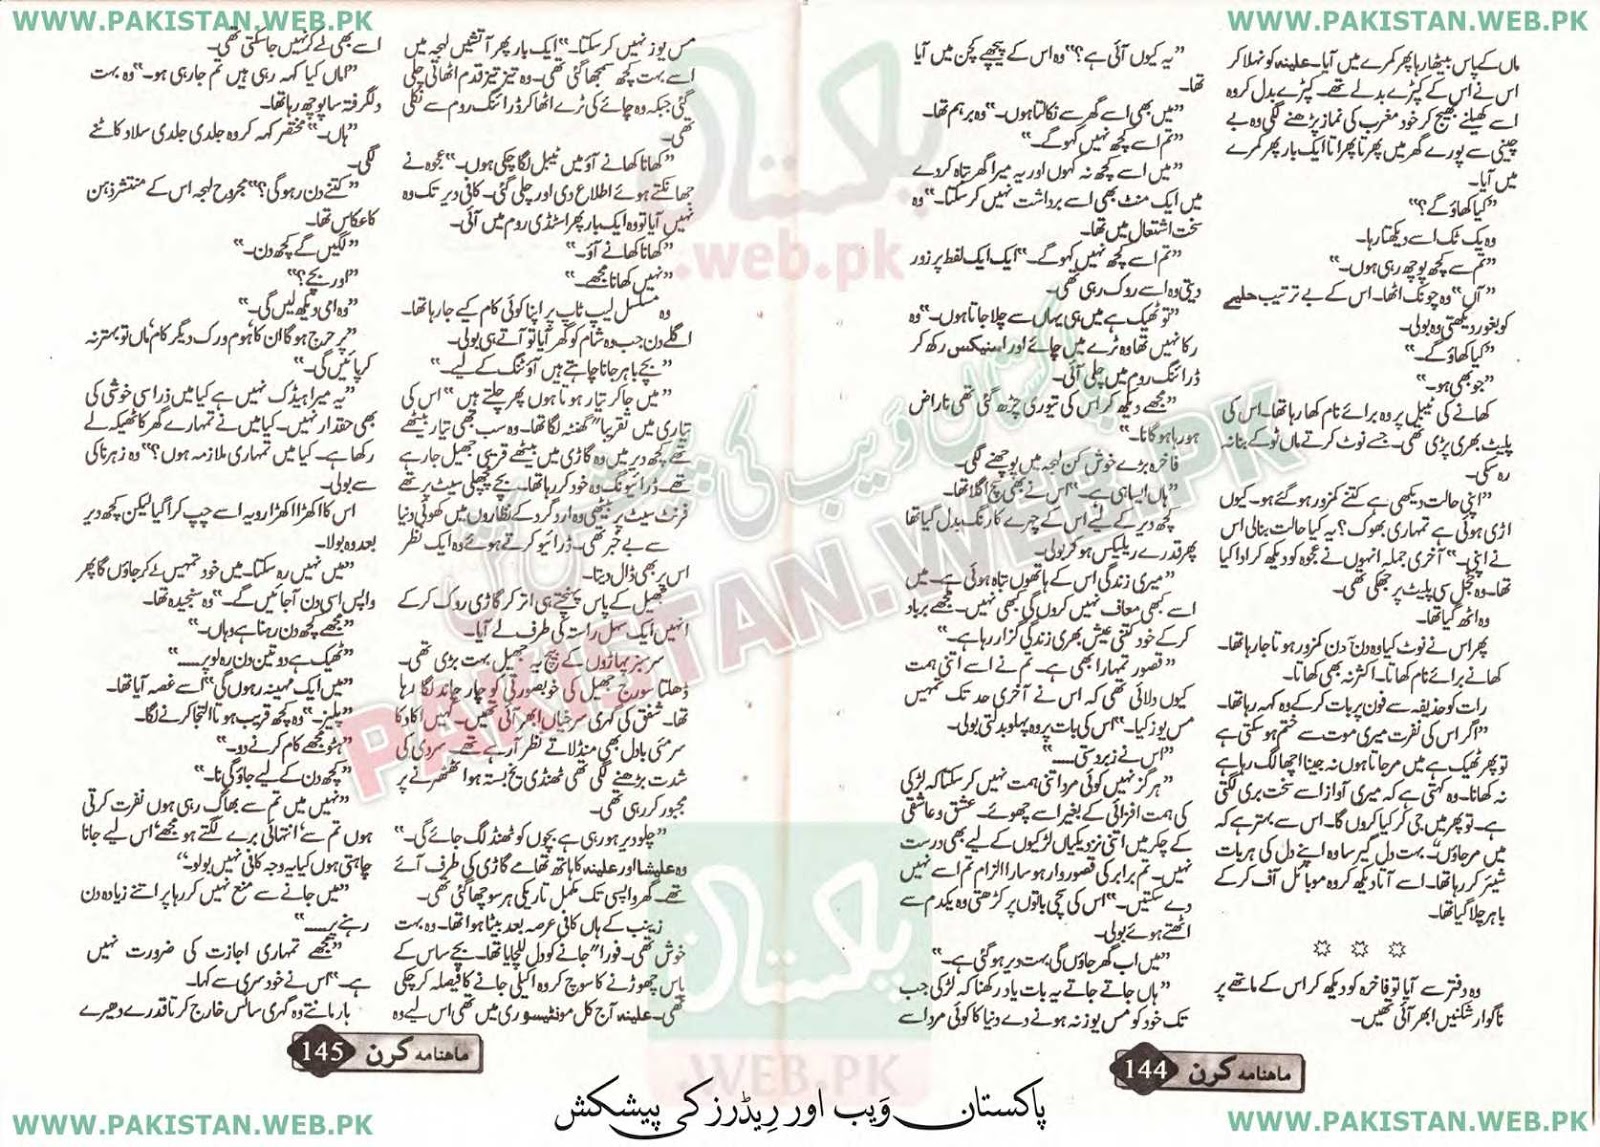 WWW.PAKISTAN.WEB.PK
WWW.PAKISTAN.WEB.PK
ماں کے پاس بیٹھا رہا پھر کمرے میں آیا۔ علینہ کو نہلا کر
اس نے اس کے کپڑے بدلے تھے۔ کپڑے بدل کر وہ
اسے کھیلنے بھیج کر خود مغرب کی نماز پڑھنے لگی وہ بے
چینی سے پورے گھر میں پھرتا پھراتا ایک بار پھر کمرے
میں آیا۔
”کیا کھاؤ گے؟“
وہ یک ٹک اسے دیکھتا رہا۔
”تم سے کچھ پوچھ رہی ہوں۔“
”آں“ وہ چونک اٹھا۔ اس کے بے ترتیب حلیے
کو بغور دیکھتی وہ بولی۔
”کیا کھاؤ گے۔“
”جو بھی ہو۔“
کھانے کی ٹیبل پر وہ برائے نام کھا رہا تھا۔ اس کی
پلیٹ بھری پڑی تھی۔ جسے نوٹ کرتے ماں ٹوکے بنا نہ
رہ سکی۔
”اپنی حالت دیکھی ہے کتنے کمزور ہو گئے ہو۔ کیوں
اڑی ہوئی ہے تمہاری بھوک؟ یہ کیا حالت بنا لی اس
نے اپنی۔“ آخری جملہ انہوں نے عجوہ کو دیکھ کر ادا کیا
تھا۔ وہ خجل سی پلیٹ پر جھکی تھی۔
وہ اٹھ گیا تھا۔
پھر اس نے نوٹ کیا وہ دن بدن کمزور ہوتا جا رہا تھا۔
کھانے برائے نام کھاتا۔ اکثر نہ بھی کھاتا۔
رات کو حذیفہ سے فون پر بات کر کے وہ کہہ رہا تھا۔
”اگر اس کی نفرت میری موت سے ختم ہو سکتی ہے
تو پھر ٹھیک ہے میں مر جاتا ہوں نہ جینا اچھا لگ رہا ہے
نہ کھانا۔ وہ کہتی ہے کہ میری آواز اسے سخت بری لگتی
ہے۔ تو پھر میں جی کر کیا کروں گا۔ اس سے بہتر ہے کہ
میں مر جاؤں“۔ بہت دل گیر سا وہ اپنے دل کی ہر بات
شیئر کر رہا تھا۔ اسے آتا دیکھ کر وہ موبائل آف کر کے
باہر چلا گیا تھا۔
وہ دفتر سے آیا تو فاخرہ کو دیکھ کر اس کے ماتھے پر
ناگوار شکنیں ابھر آئی تھیں۔
”یہ کیوں آئی ہے؟“ وہ اس کے پیچھے کچن میں آیا
تھا۔
”میں بھی اسے گھر سے نکالتا ہوں۔“ وہ برہم تھا۔
”تم اسے کچھ نہیں کہو گے۔“
”میں اسے کچھ نہ کہوں اور یہ میرا گھر تباہ کر دے
میں ایک منٹ بھی اسے برداشت نہیں کر سکتا۔“ وہ
سخت اشتعال میں تھا۔
”تم اسے کچھ نہیں کہو گے۔“ ایک ایک لفظ پر زور
دیتی وہ اسے روک رہی تھی۔
”تو ٹھیک ہے میں ہی یہاں سے چلا جاتا ہوں۔“ وہ
رکا نہیں تھا وہ ٹرے میں چائے اور اسنیکس رکھ کر
ڈرائنگ روم میں چلی آئی۔
”مجھے دیکھ کر اس کی تیوری چڑھ گئی تھی ناراض
ہو رہا ہو گا نا۔“
فاخرہ بڑے خوش کن لہجہ میں پوچھنے لگی۔
”ہاں ایسا ہی ہے۔“ اس نے بھی سچ اگلا تھا۔
کچھ دیر کے لیے اس کے چہرے کا رنگ بدل گیا تھا
پھر قدرے ریلیکس ہو کر بولی۔
”میری زندگی اس کے ہاتھوں تباہ ہوئی ہے۔ میں
اسے کبھی معاف نہیں کروں گی کبھی نہیں۔ مجھے برباد
کر کے خود کتنی عیش بھری زندگی گزار رہا ہے۔“
”قصور تمہارا بھی ہے۔ تم نے اسے اتنی ہمت
کیوں دلائی تھی کہ اس نے آخری حد تک تمہیں
مس یوز کیا۔“ اس کی بات پر وہ پہلو بدلتی بولی۔
”اس نے زبردستی......“
”ہرگز نہیں کوئی مرد اتنی ہمت نہیں کر سکتا کہ لڑکی
کی ہمت افزائی کے بغیر اسے چھوئے۔ عشق و عاشقی
کے چکر میں اتنی نزدیکیاں لڑکیوں کے لیے بھی درست
نہیں۔ تم برابر کی قصوروار ہو سارا الزام تم اسے نہیں
دے سکتیں۔“ اس کی سچی باتوں پر کڑھتی وہ یکدم سے
اٹھتے ہوئے بولی۔
”میں اب گھر جاؤں گی بہت دیر ہو گئی ہے۔“
”ہاں جاتے جاتے یہ بات یاد رکھنا کہ لڑکی جب
تک خود کو مس یوز نہ ہونے دے دنیا کا کوئی مرد اسے
ماہنامہ کرن 144
مس یوز نہیں کر سکتا۔“ ایک بار پھر آتشیں لہجہ میں
اسے بہت کچھ سمجھا گئی تھی۔ وہ تیز تیز قدم اٹھاتی چلی
گئی جبکہ وہ چائے کی ٹرے اٹھا کر ڈرائنگ روم سے نکلی
تھی۔
”کھانا کھانے آؤ میں ٹیبل لگا چکی ہوں۔“ عجوہ نے
جھانکتے ہوئے اطلاع دی اور چلی گئی۔ کافی دیر تک وہ
نہیں آیا تو وہ ایک بار پھر اسٹڈی روم میں آئی۔
”کھانا کھانے آؤ۔“
”نہیں کھانا مجھے۔“
وہ مسلسل لیپ ٹاپ پر اپنا کوئی کام کیے جا رہا تھا۔
اگلے دن جب وہ شام کو گھر آیا تو آتے ہی بولی۔
”بچے باہر جانا چاہتے ہیں آؤٹنگ کے لیے۔“
”میں جا کر تیار ہوتا ہوں پھر چلتے ہیں“ اس کی
تیاری میں تقریباً گھنٹہ لگا تھا۔ وہ سب بھی تیار بیٹھے
تھے کچھ دیر میں وہ گاڑی میں بیٹھے قریبی جھیل جا رہے
تھے۔ ڈرائیونگ وہ خود کر رہا تھا۔ بچے پچھلی سیٹ پر تھے
فرنٹ سیٹ پر بیٹھی وہ ارد گرد کے نظاروں میں کھوئی دنیا
سے بے خبر تھی۔ ڈرائیو کرتے ہوئے وہ ایک نظر
اس پر بھی ڈال دیتا۔
جھیل کے پاس پہنچتے ہی اتر کر گاڑی روک کر کے
انہیں ایک سہل راستہ کی طرف لے آیا۔
سرسبز پہاڑوں کے بیچ یہ جھیل بہت بڑی تھی۔
ڈھلتا سورج جھیل کی خوبصورتی کو چار چاند لگا رہا
تھا۔ شفق کی گہری سرخیاں ابھر آئی تھیں۔ کہیں اکا دکا
سرمئی بادل بھی منڈلاتے نظر آ رہے تھے۔ سردی کی
شدت بڑھنے لگی تھی ٹھنڈی یخ بستہ ہوا ٹھٹھرنے پر
مجبور کر رہی تھی۔
”چلو دیر ہو رہی ہے بچوں کو ٹھنڈ لگ جائے گی۔“
وہ علیشا اور علینہ کا ہاتھ تھامے گاڑی کی طرف آئے
تھے۔ گھر واپسی تک مکمل تاریکی ہر سو چھا گئی تھی۔
زینب کے ہاں کافی عرصہ بعد بیٹا ہوا تھا۔ وہ بہت
خوش تھی۔ فوراً جانے کو دل للچایا تھا۔ بچے ساس کے
پاس چھوڑنے کا سوچ کر وہ اکیلی جانے کا فیصلہ کر چکی
تھی۔ علینہ آج کل مونٹیسوری میں تھی اس لیے وہ
اسے بھی لے کر نہیں جا سکتی تھی۔
”اماں کیا کہہ رہی ہیں تم جا رہی ہو۔“ وہ بہت
دلگرفتہ سا پوچھ رہا تھا۔
”ہاں۔“ مختصر کہہ کر وہ جلدی جلدی سلاد کاٹنے
لگی۔
”کتنے دن رہو گی؟“ مجروح لہجہ اس کے منتشر ذہن
کا عکاس تھا۔
”لگیں گے کچھ دن۔“
”اور بچے؟“
”وہ امی دیکھ لیں گی۔“
”پر حرج ہو گا ان کا‘ ہوم ورک دیگر کام‘ ماں تو بہتر نہ
کر پائیں گی۔“
”یہ میرا ہیڈک نہیں ہے کیا میں ذرا سی خوشی کی
بھی حقدار نہیں۔ کیا میں نے تمہارے گھر کا ٹھیکہ لے
رکھا ہے۔ کیا میں تمہاری ملازمہ ہوں؟“ وہ زہرناکی
سے بولی۔
اس کا اکھڑا اکھڑا رویہ اسے چپ کرا گیا لیکن کچھ دیر
بعد وہ بولا۔
”میں نہیں رہ سکتا۔ میں خود تمہیں لے کر جاؤں گا پھر
واپس اسی دن آ جائیں گے۔“ وہ سنجیدہ تھا۔
”مجھے کچھ دن رہنا ہے وہاں۔“
”ٹھیک ہے دو تین دن رہ لو پر......“
”میں ایک مہینہ رہوں گی“ اسے غصہ آیا تھا۔
”پلیز۔“ وہ کچھ قریب ہوتا التجا کرنے لگا۔
”ہٹو مجھے کام کرنے دو۔“
”کچھ دن کے لیے جاؤ گی نا۔“
”نہیں میں تم سے بھاگ رہی ہوں نفرت کرتی
ہوں تم سے‘ انتہائی برے لگتے ہو مجھے‘ اس لیے جانا
چاہتی ہوں کیا یہ وجہ کافی نہیں بولو۔“
”میں جانے سے منع نہیں کر رہا پر اتنے زیادہ دن
رہنے پر......“
”مجھے تمہاری اجازت کی ضرورت نہیں
ہے۔“ اس نے خود سری سے کہا۔
ہار مانتے وہ گہری سانس خارج کرتا قدرے دھیرے
ماہنامہ کرن 145
پاکستان ویب اور ریڈرز کی پیشکش
WWW.PAKISTAN.WEB.PK
WWW.PAKISTAN.WEB.PK
PAKISTAN.WEB.PK
پاکستان
.web.pk
پاکستان
.WEB.PK